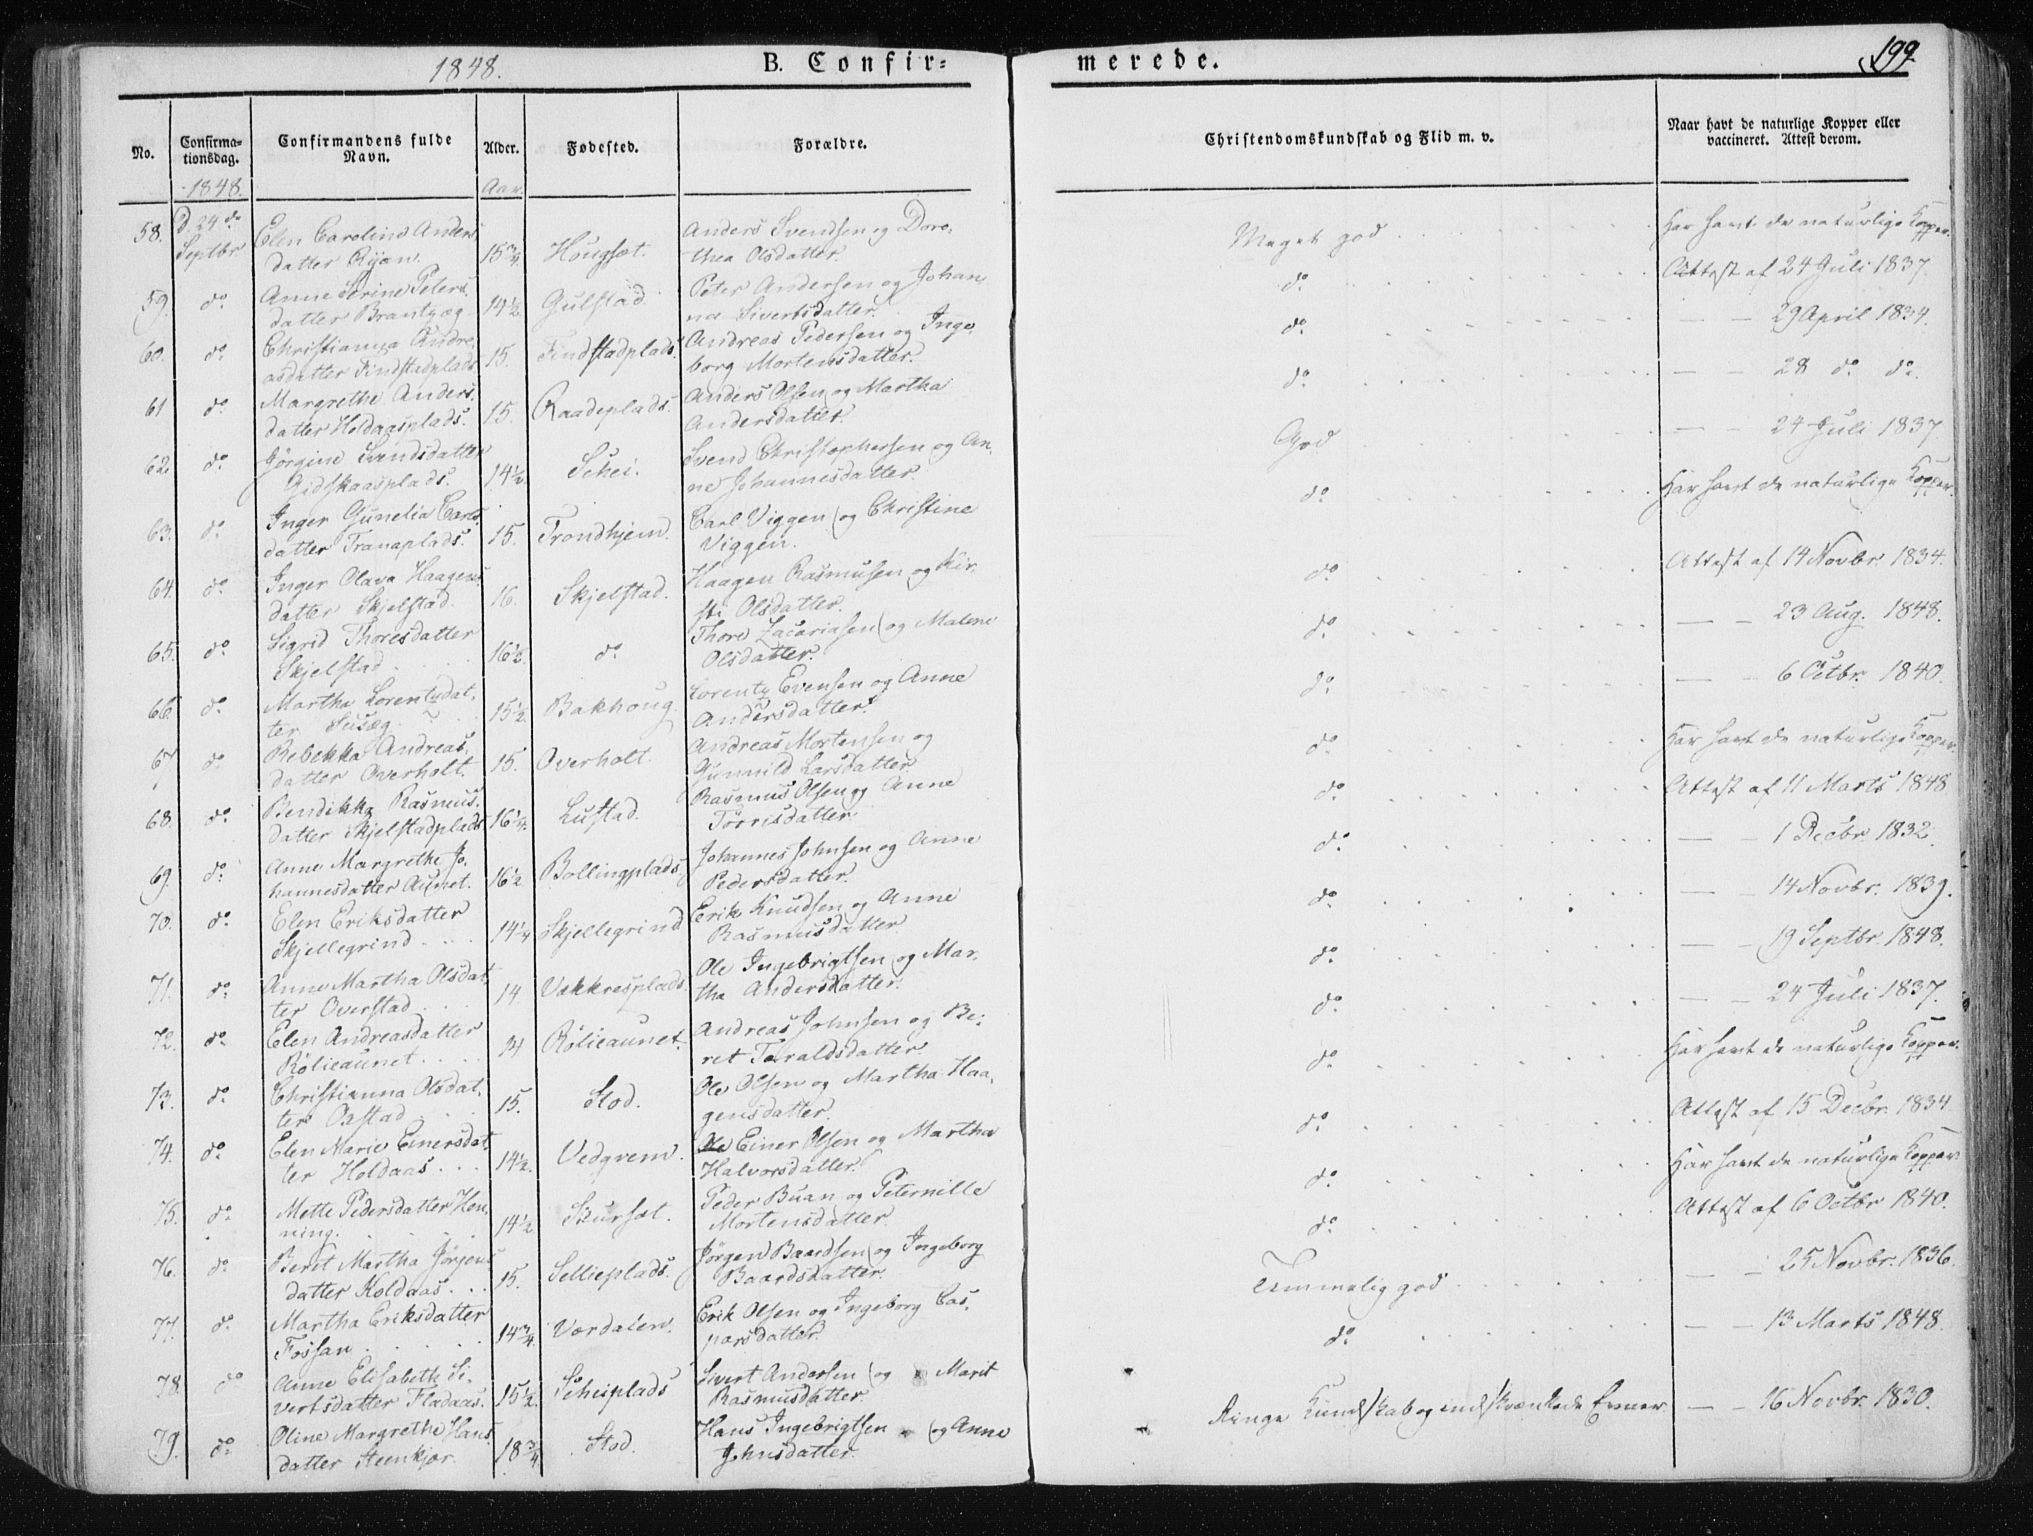 1848. B. Confir= merede. 199.
No. Confirma-tionsdag. Confirmandens fulde Navn. Alder. Fødested. Forældre. Christendomskundskab og Flid m. v. Naar havt de naturlige Kopper eller vaccineret. Attest derom.
1848. Aar.
58. D. 24de Elen Caroline Anders Anders Svendsen og Doro- Har havt de naturlige Kopper.
Septbr datter 15 3/4 Hougset. thea Olsdatter. Meget god
59. do Anne Serine Peters. 14 1/2 Gulstad Peter Andersen og Johan do Attest af 24 Juli 1837.
datter na Sivertsdatter.
60. do Christianna Andre- 15. Findstadplads. Andreas Pedersen og Inge- do — — 29 April 1834.
asdatter Findstadplads borg Mortensdatter.
61 do Margrethe Anders. 15. Raadeplads. Anders Olsen og Martha do — — 28 do do
datter Holdaasplads. Andersdatter.
62. do Jørgine Svendsdatter 14 1/2 Schei. Svend Christophersen og An- God — — 24 Juli 1837
Gidskaasplads. ne Johannesdatter.
63. do Inger Gunelia Carls. 15. Trondhjem. Carl Viggen og Christine do Har havt de naturlige Kopper.
datter Tranaplads. Viggen.
64. do Inger Olava Haagens 16. Skjelstad. Haagen Rasmusen og Kir- do Attest af 14 Novbr. 1834.
datter Skjelstad. sti Olsdatter.
65. do Sigrid Thoresdatter 16 1/2 do Thore Zacariasen og Malene do — — 23 Aug. 1848.
Skjelstad Olsdatter.
66. do Martha Lorentzdat- 15 1/2 Bakhoug Lorentz Evensen og Anne do — — 6 Octbr. 1840.
ter Susæg. Andersdatter.
67 do Rebekka Andreas. 15. Overholt. Andreas Mortensen og do Har havt de naturlige Kopper.
datter Overholt. Gunnild Larsdatter
68. do Bendikka Rasmus. 16 1/4 Lustad. Rasmus Olsen og Anne do Attest af 11 Marts 1848
datter Skjelstadplads Tørrisdatter
69. do Anne Margrethe Jo- 16 1/2 Bollingplads. Johannes Johnsen og Anne do — — 1 Decbr. 1832.
hannesdatter Aunet. Pedersdatter.
70. do Elen Eriksdatter 14 1/4 Skjellegrind Erik Knudsen og Anne do — — 14 Novbr. 1839.
Skjellegrind Rasmusdatter
71. do Anne Martha Olsdat- 14 Vakkresplads. Ole Ingebrigtsen og Mar- do — — 19 Septbr. 1848.
ter Overstad tha Andersdatter.
72. do Elen Andreasdatter 14 Rølieaunet. Andreas Johnsen og Be- do — — 24 Juli 1837.
Rølieaunet. ret Taraldsdatter.
73. do Christianna Olsdat. 15. Stod. Ole Olsen og Martha Haa- do Har havt de naturlige Kopper.
ter Oxstad gensdatter.
74. do Elen Marie Einersdat- 14 1/2. Vedqvem. Ole Einer Olsen og Martha do Attest af 15 Decbr. 1834.
ter Holdaas Halvorsdatter.
75. do Mette Pedersdatter Hen- 14 1/2 Skurset. Peder Buan og Peternille do Har havt de naturlige Kopper
ning. Mortensdatter
76. do Beret Martha Jørgens 15. Sellieplads. Jørgen Baardsen og Ingeborg do Attest af 6 Octbr 1840.
datter Koldaas. Baardsdatter.
77. do Martha Eriksdatter 14 3/4 Værdalen. Erik Olsen og Ingeborg Cas- Temmelig god — — 25 Novbr. 1836.
Fossan parsdatter.
78. do Anne Elisabeth Si- 15 1/2. Scheiplads Sivert Andersen og Marit do — — 13 Marts 1848.
vertsdatter Fladaas. Rasmusdatter.
79. do Oline Margrethe Hans 18 3/4 Stod. Hans Ingebrigtsen og Anne Ringe Kundskab og indskrænkede Evner — — 16 Novbr. 1830.
datter Steenkjær. Johnsdatter.